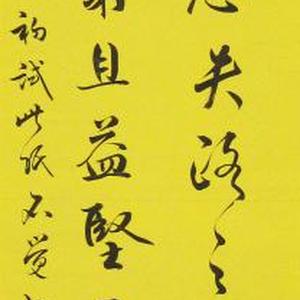 失路之
且益堅
初試此紙不覺